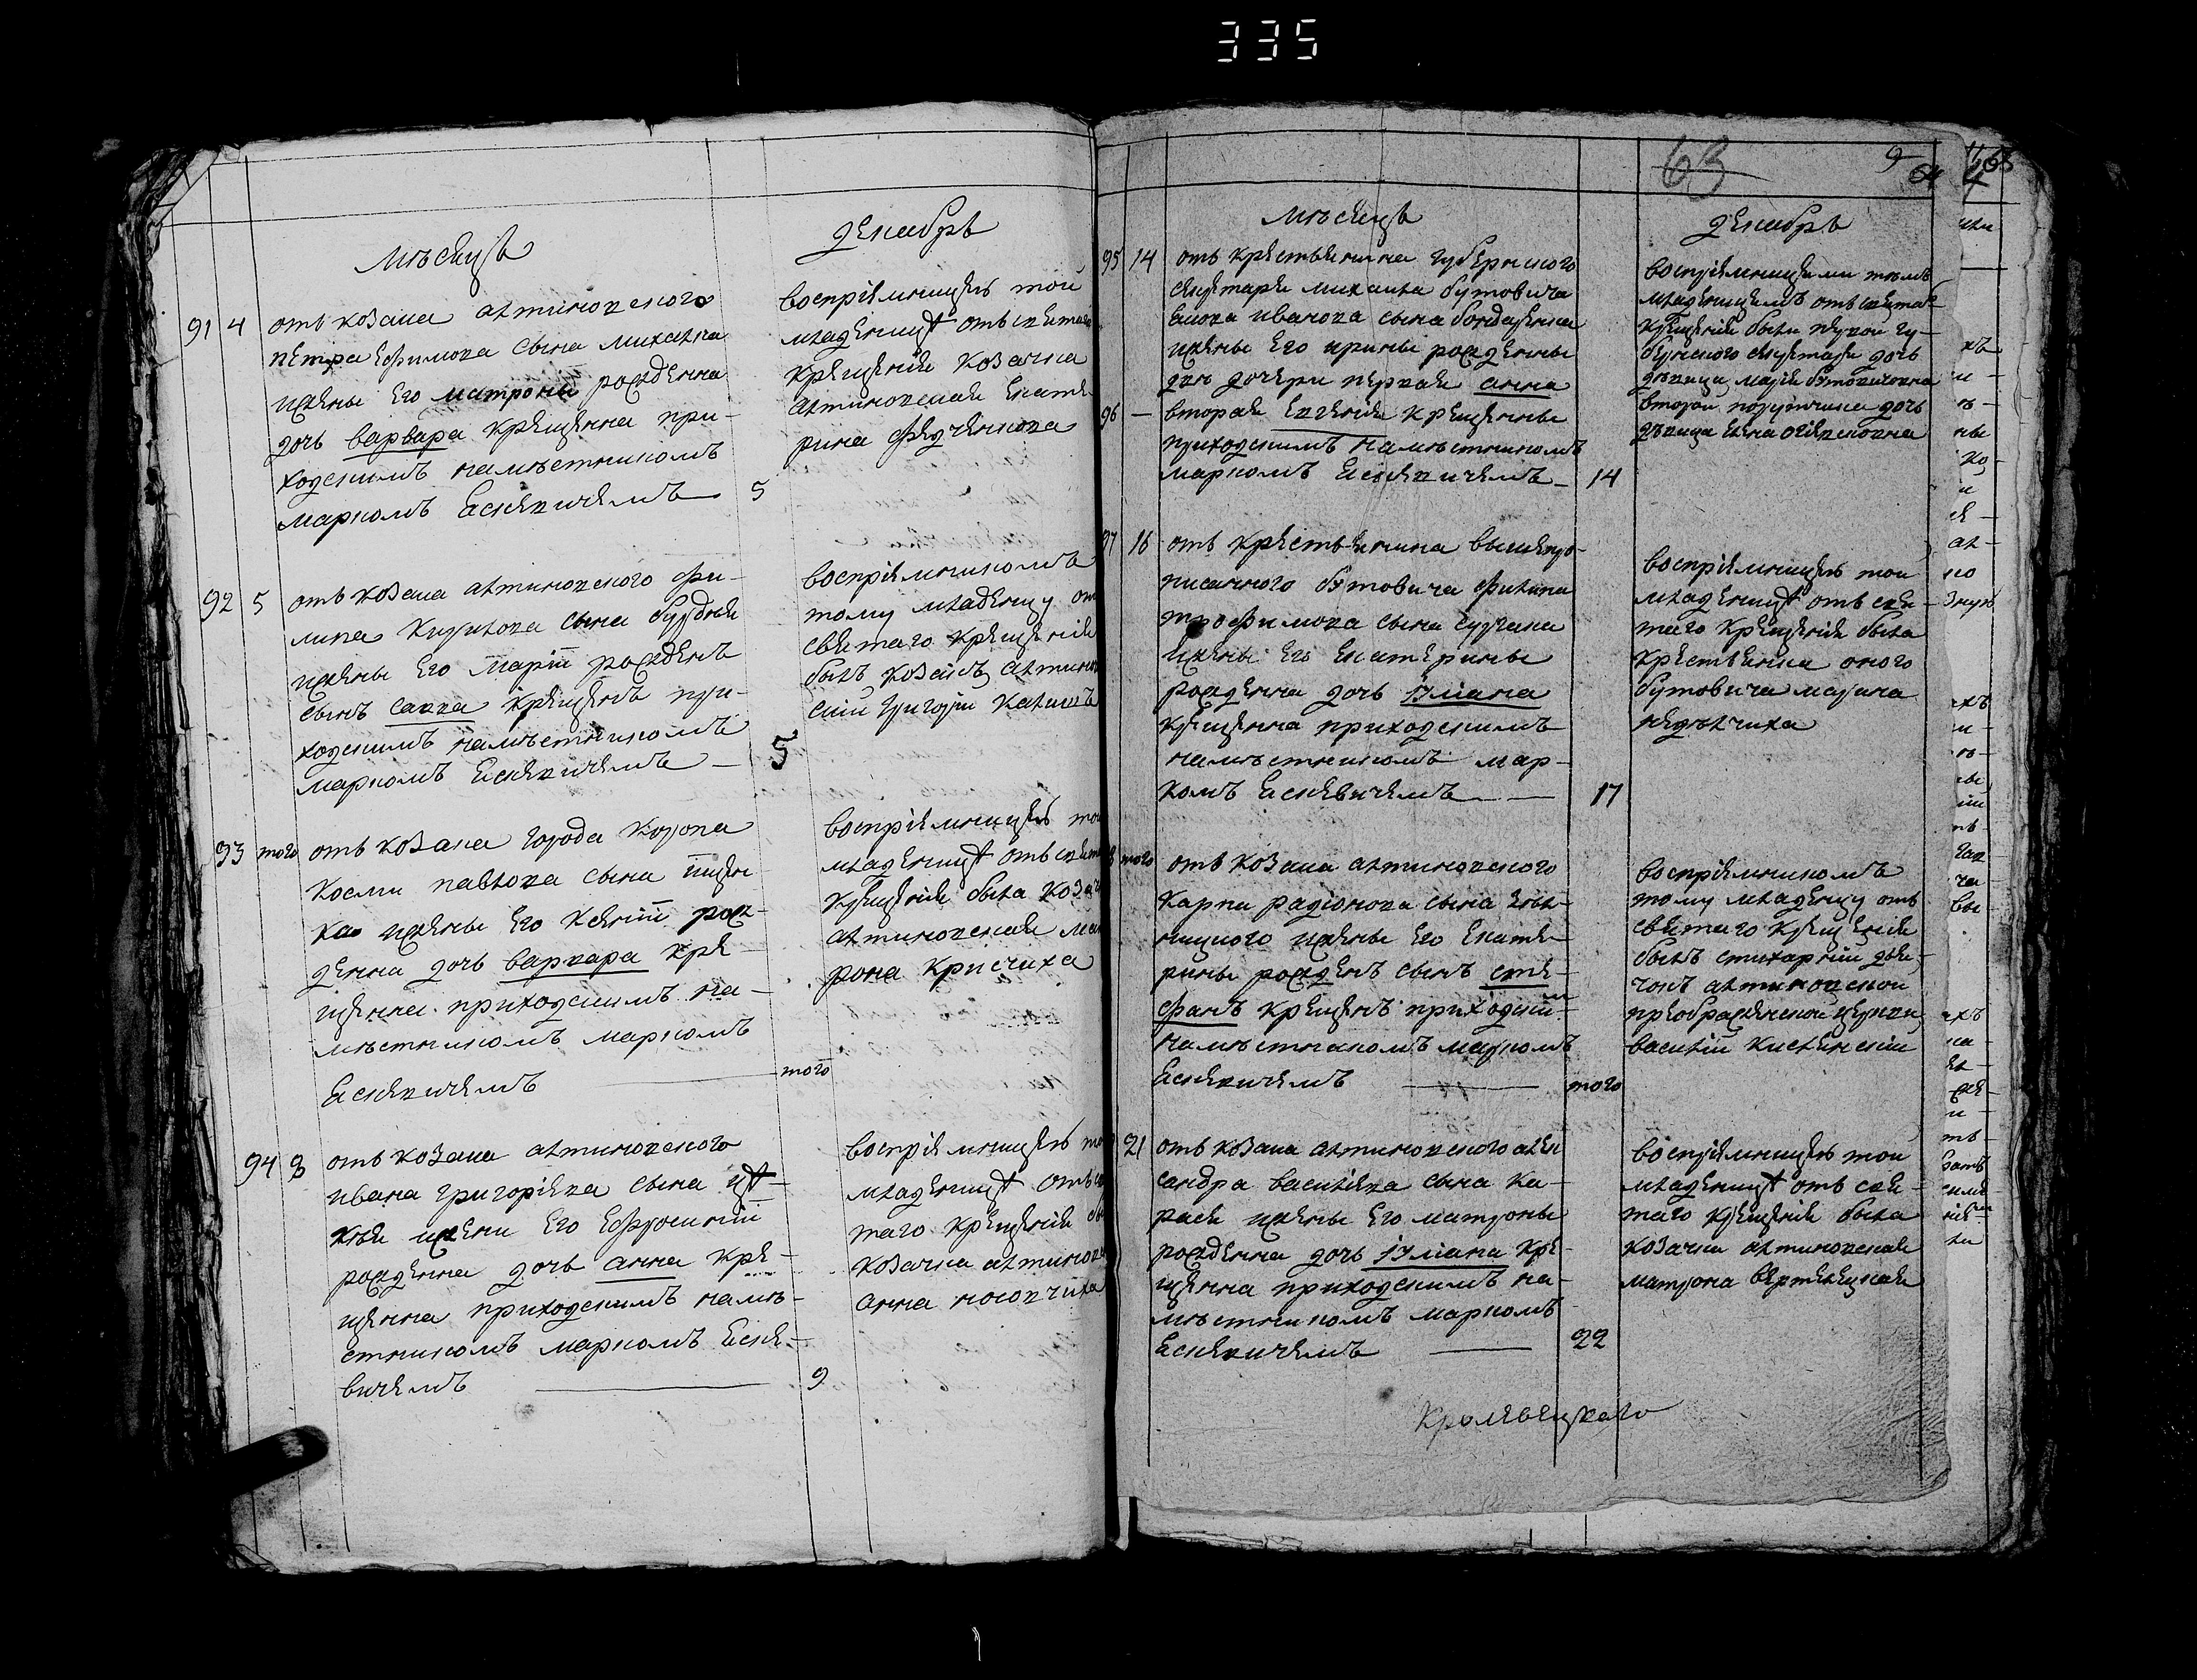 335
мѣсяцъ
декабрь
91 4 отъ козака алтиновского
петра ефимова сына михална
жены его матроны рожденна
дочь варвара крещенна при-
ходскимъ намѣстникомъ
маркомъ Есневичемъ 5
воспріемницею той
младеницѣ отъ святаго
крещенія козачка
алтиновская Екате
рина Федченкова
92 5 отъ козака алтиновского фи-
липа Кирилова сына бурдюга
жены его маріи рожденъ
сынъ савва крещенъ при-
ходскимъ намѣстникомъ
маркомъ Есневичемъ — 5
воспріемникомъ
тому младенцу от
святаго крещенія
былъ козакъ алтинов
скій григорій
93 того отъ козака города коропа
космы павлова сына
жены его ксеніи рож-
денна дочь варвара кре-
щенна приходскимъ на-
мѣстникомъ маркомъ
Есневичемъ того
воспріемницею той
младеницѣ отъ
крещенія была коза
алтиновская мат
рона крисчиха
94 8 отъ козака алтиновского
ивана григоріева сына
жены его ефросиніи
рожденна дочь анна кре-
щенна приходскимъ намѣ-
стникомъ маркомъ Есне-
вичемъ 9
воспріемницею
младеницѣ отъ
таго крещенія
козачка алтинов
анна носовчиха
63
мѣсяцъ
декабрь
95 14 отъ крестьянина губернского
секретаря михаила бутовича
ивanова сына бондаренка
жены его ирины рожденны
двѣ дочери первая анна
96 — вторая евгенія крещенны
приходскимъ намѣстникомъ
маркомъ Есневичемъ — 14
воспріемницами тѣмъ
младеницамъ отъ святаго
крещенія были первой гу-
бернского секретаря дочь
дѣвица марія бутовичовна
второй порутчика дочь
дѣвица елена
97 16 отъ крестьянина вышепро-
писанного бутовича филипа
трофимова сына
жены его екатерины
рожденна дочь іуліана
крещенна приходскимъ
намѣстникомъ мар-
комъ Есневичемъ — 17
воспріемницею той
младеницѣ отъ свя-
таго крещенія была
крестьянка оного
бутовича марина
недѣлчиха
того отъ козака алтиновского
карпа радіонова сына
жены его екате-
рины рожденъ сынъ сте-
фанъ крещенъ приходским
намѣстникомъ маркомъ
Есневичемъ — того
воспріемникомъ
тому младенцу отъ
святаго крещенія
былъ стихарній дья-
чокъ алтиновской
преображенской церкви
василій
21 отъ козака алтиновского алек
сандра василіева сына ка-
рася жены его матроны
рожденна дочь іуліана кре-
щенна приходскимъ на-
мѣстникомъ маркомъ
Есневичемъ — 22
воспріемницею той
младеницѣ отъ свя-
таго крещенія была
козачка алтиновская
матрона вертелецкая
Кролевецкаго